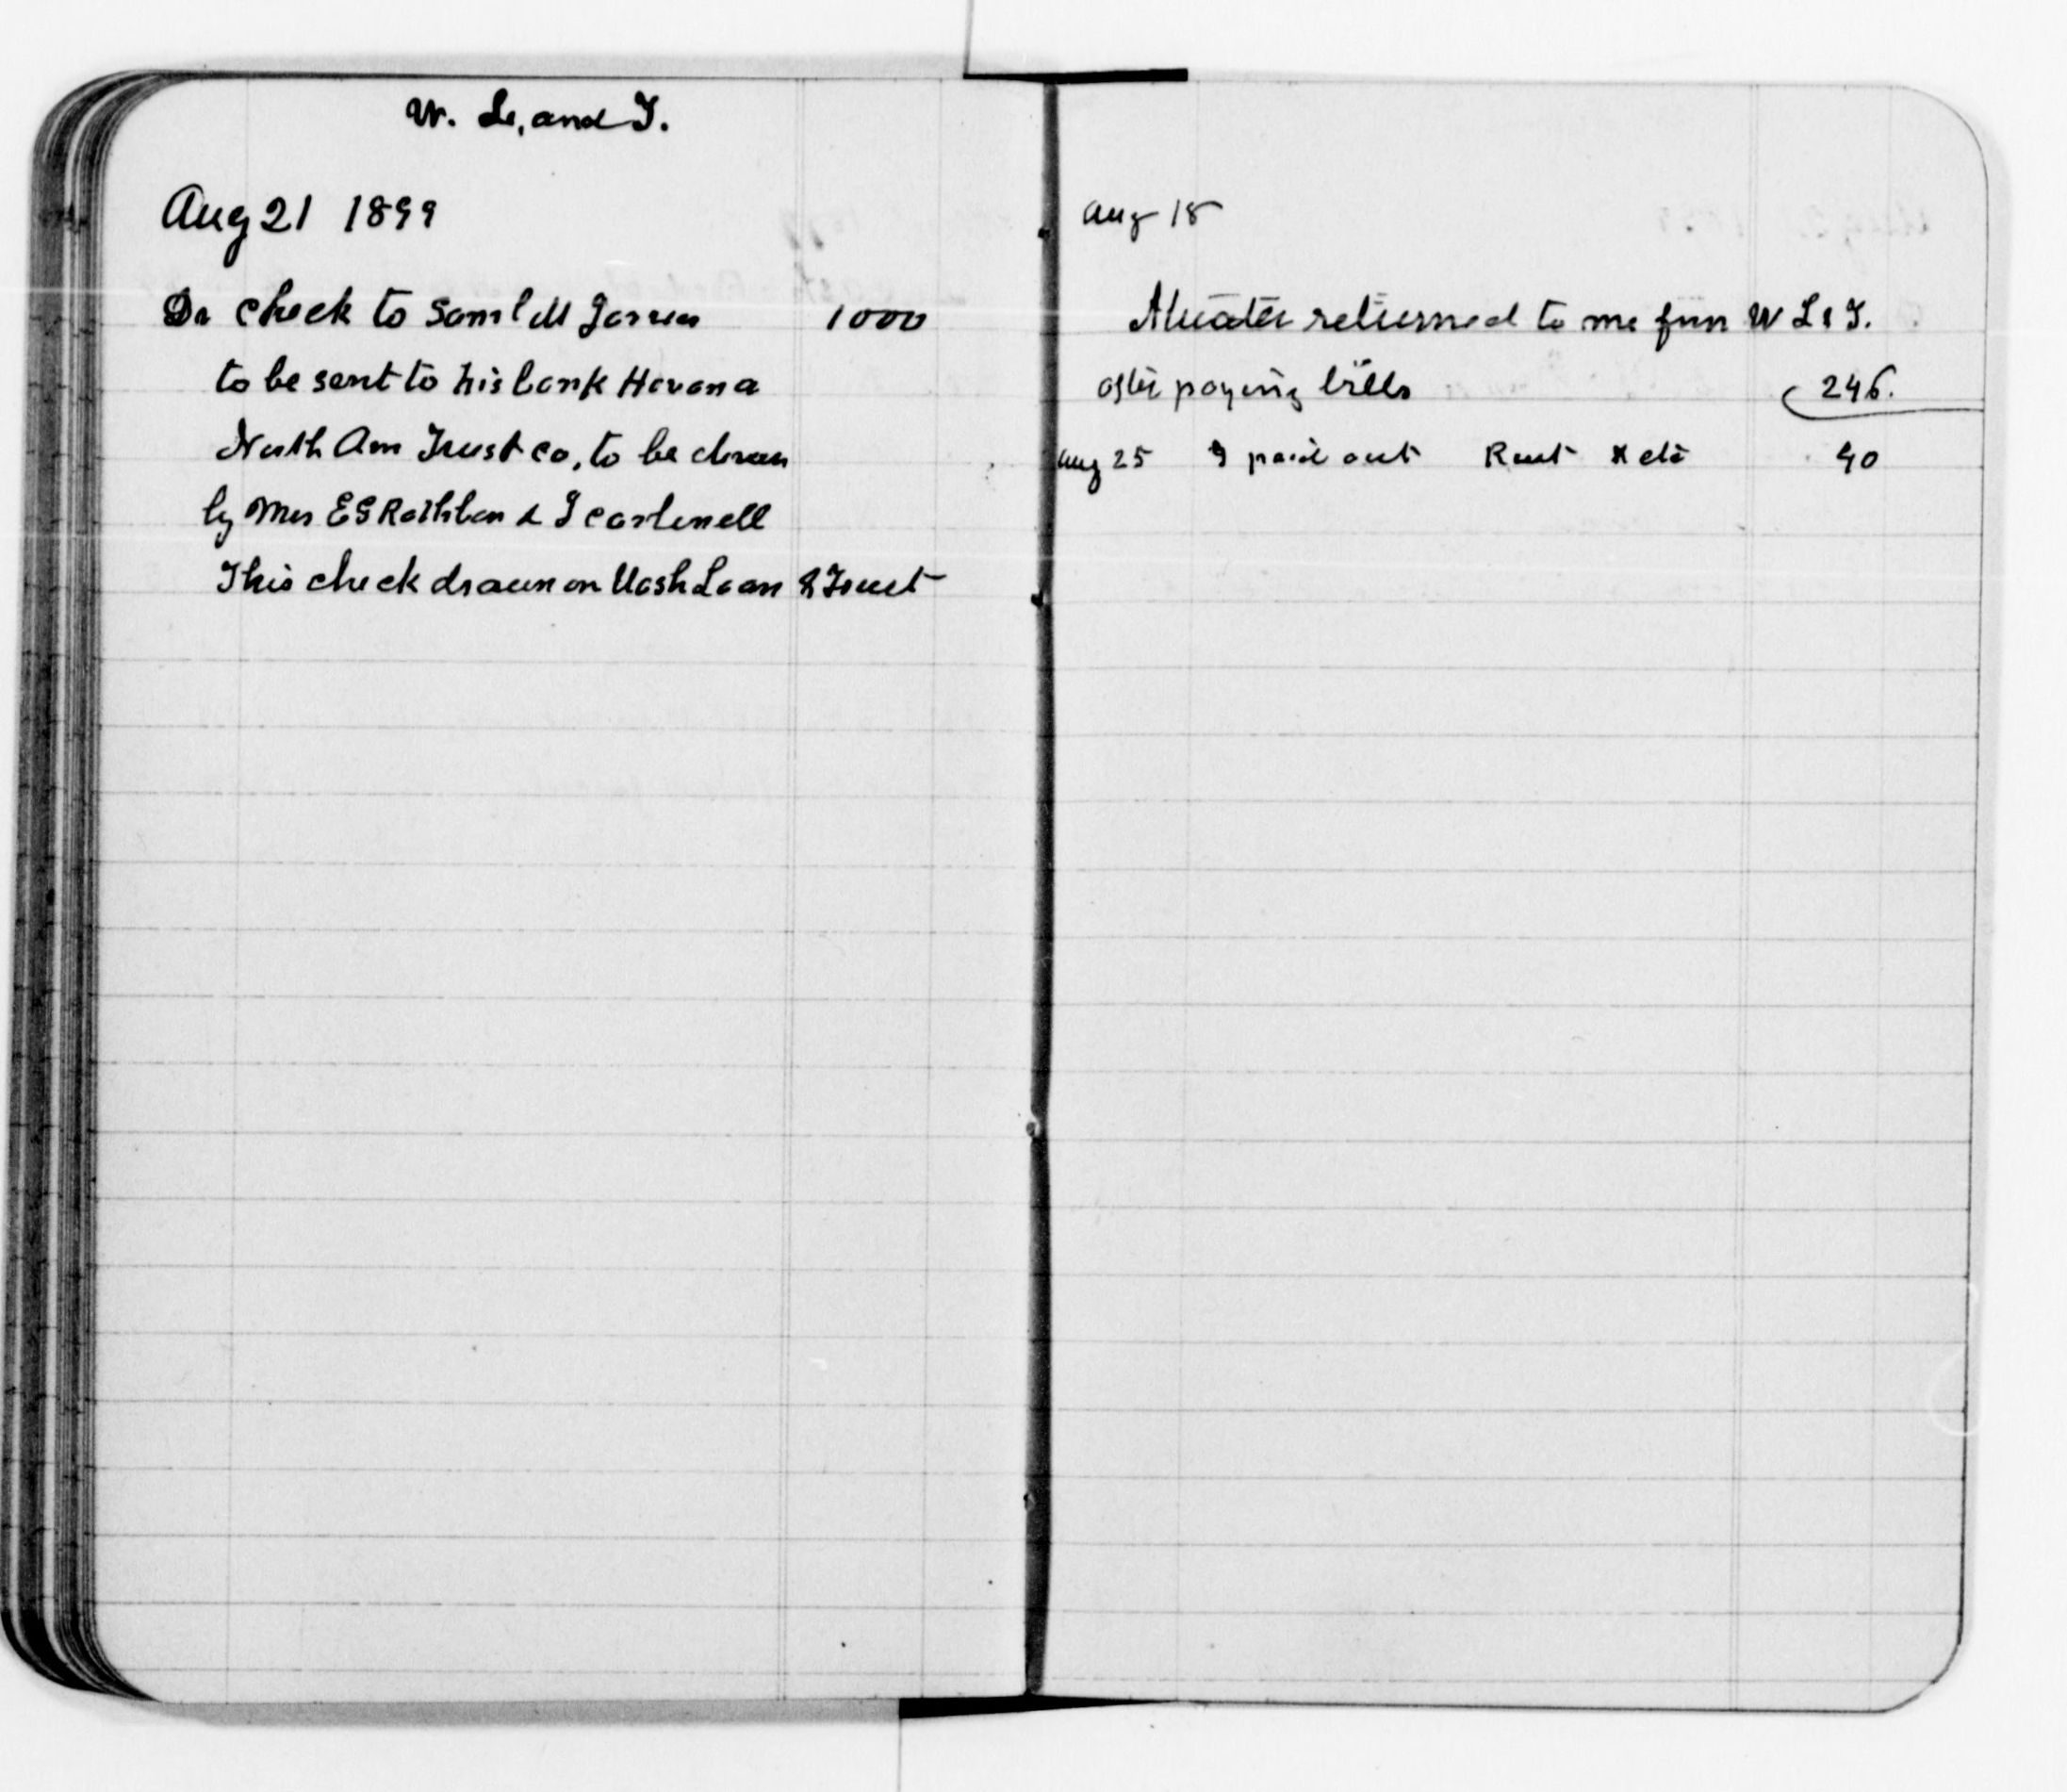 W. L, and T.
Aug 21 1899
Dr check to Saml M Jarvis 1000
to be sent to his bank Havana
North Am Trust co, to be drawn
by Mrs E G Rathbon &
This check drawn on Wash Loan & Trust
Aug 18
returned to me from W L & T.
after paying bills 246.
Aug 25 I paid out Rent & etc 40